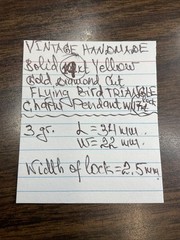 VINTAGE HANDMADE
Solid 14kt Yellow
Gold Diamond Cut
FLYING Bird TRIANGLE
Charm Pendant
3 gr. L = 34 mm.
W = 22 mm.
Width of lock = 2.5 mm.